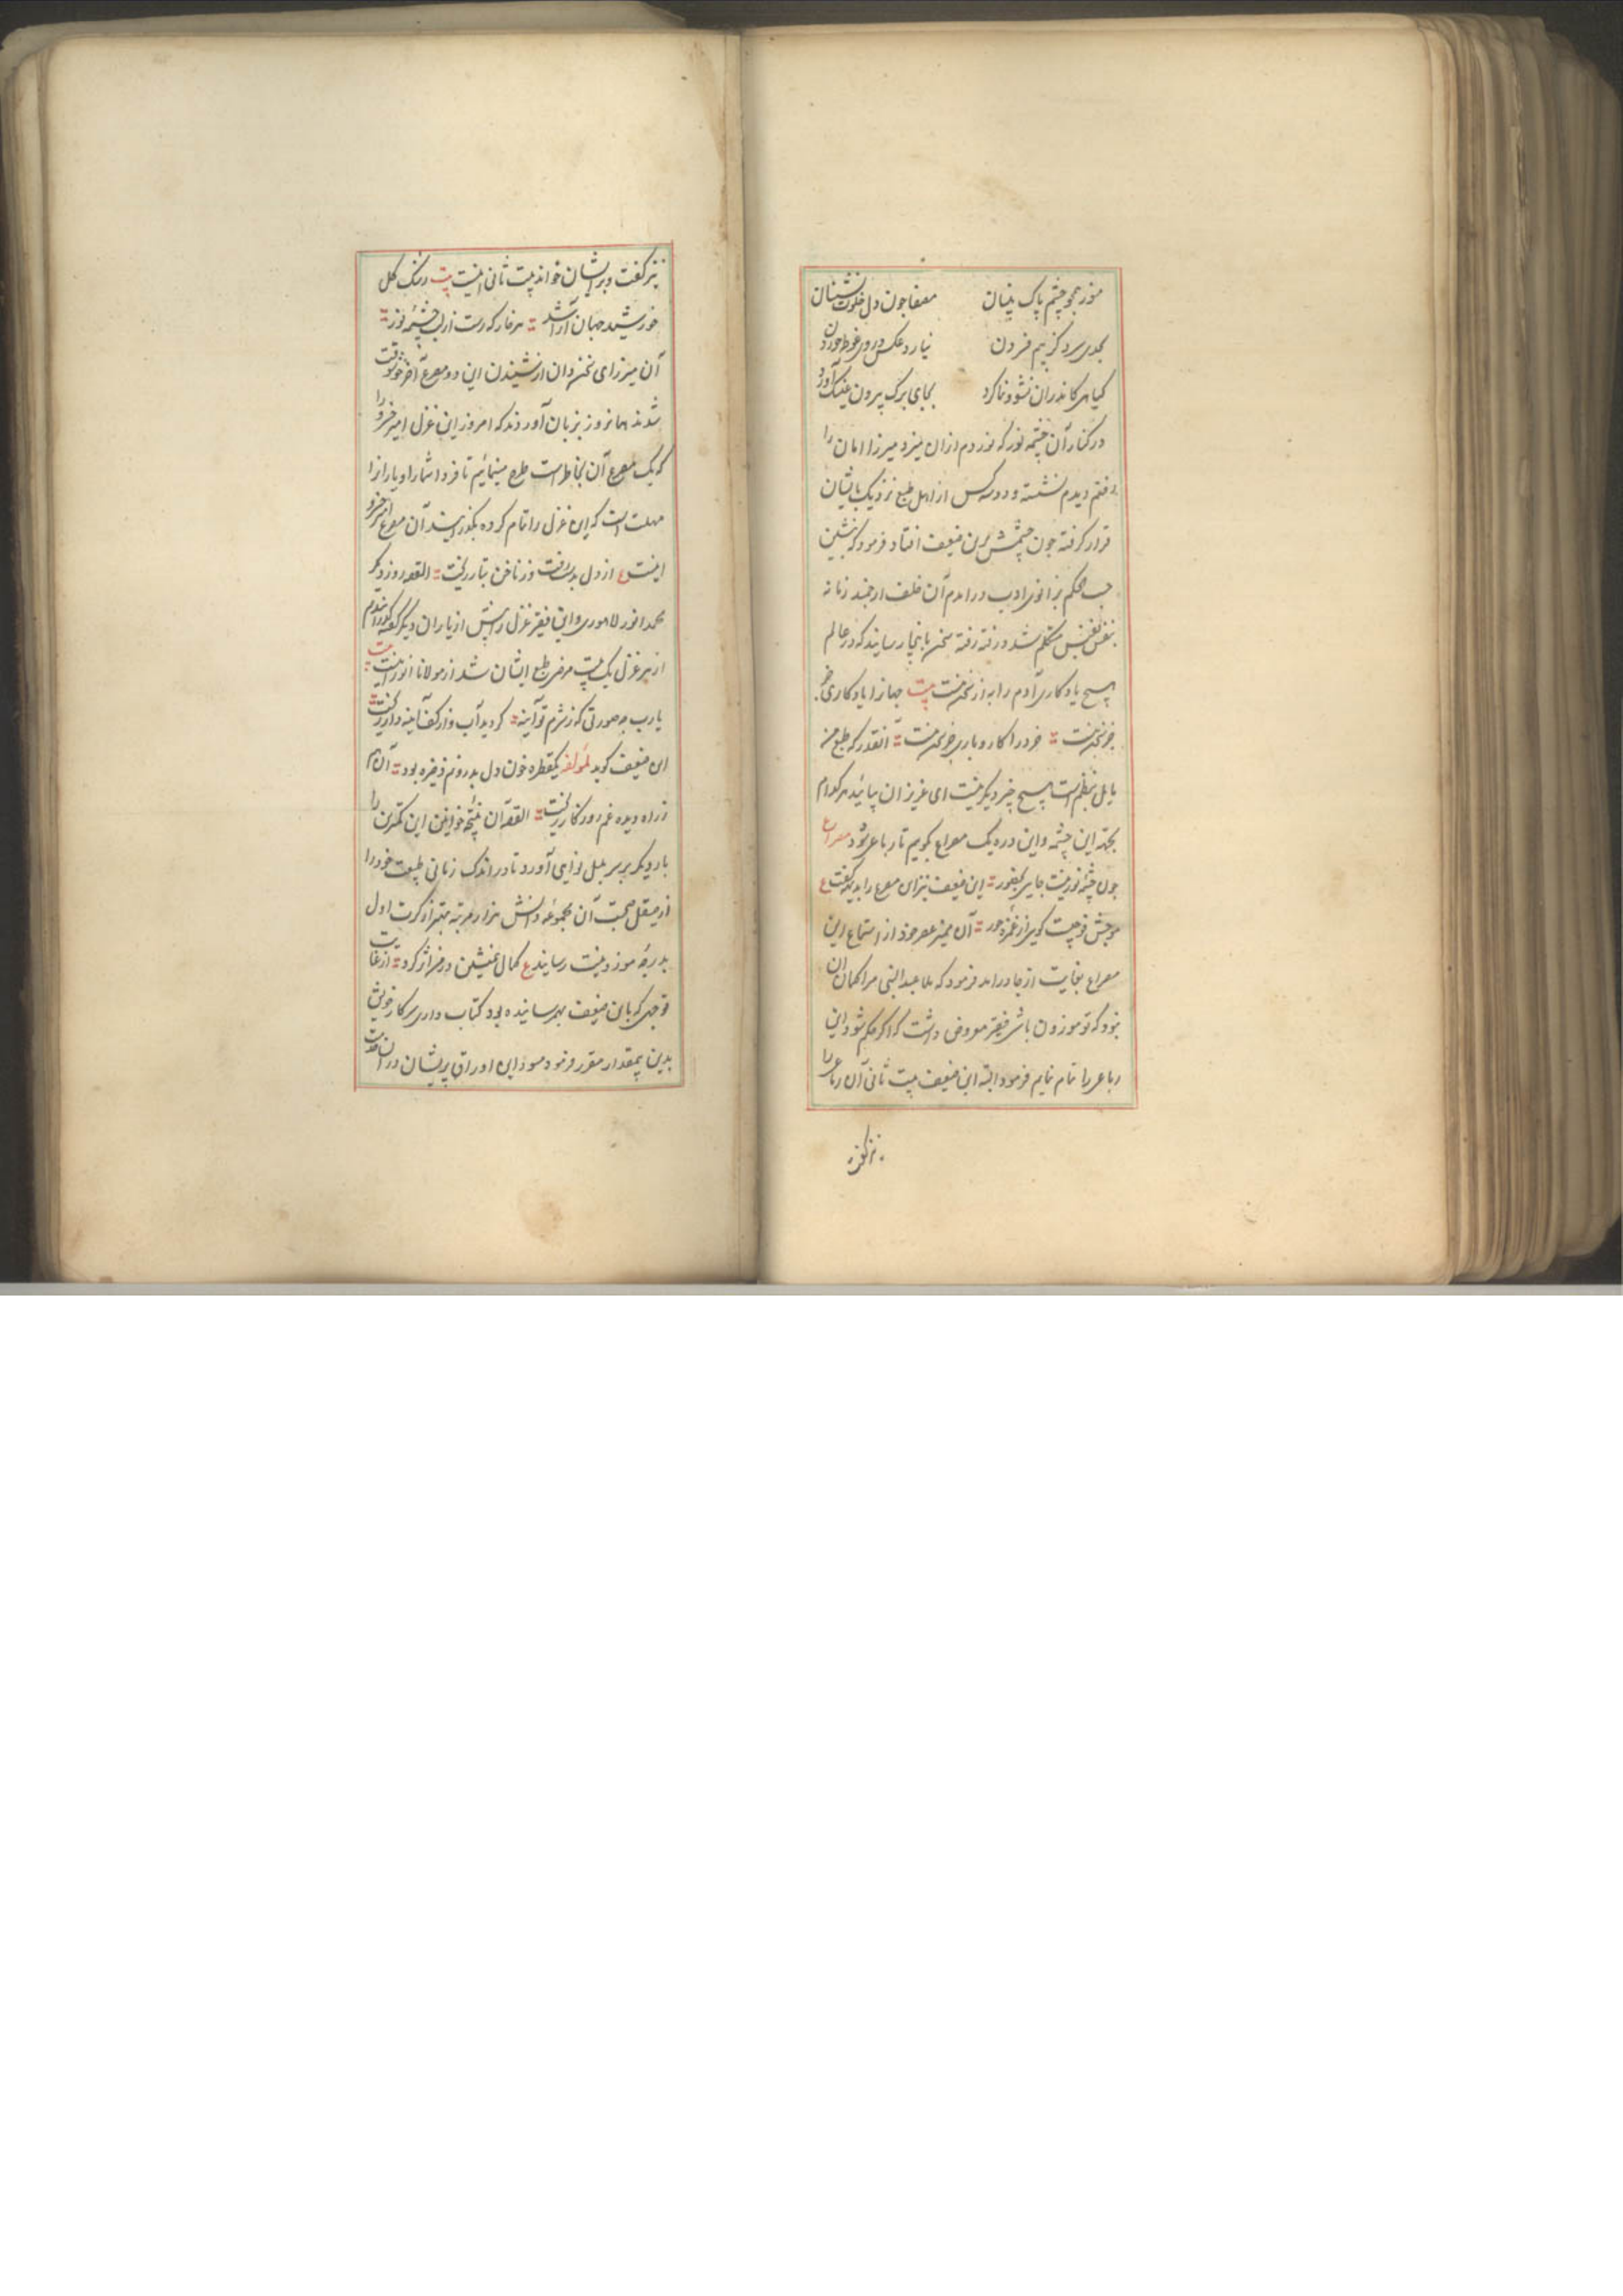 منور همچو چشم پاک بینان مصفا چون دل خلوت نشینان
بحدی سرد کز بیم فسردن نیارد عکس در وی غوطه خوردن
گیاهی کاندران نشو و نما کرد بجای برگ بیرون عینک آورد
در کنار آن چشمه نور که نور دم ازان میزد میرزا امان را
رفتم دیدم نشسته و دو سه کس از اهل طبع نزدیک بایشان
قرار گرفته چون چشمش برین ضعیف افتاد فرمود که بنشین
حسب الحکم بزانوی ادب درامدم آن خلف ارجمند زمانه
بنفس نفیس متکلم شد و رفته رفته سخن بانجا رسانید که در عالم
هیچ یادکاری آدم را به از سخن نیست بیت جهانرا یادکاری
جز سخن نیست خرد را کار و باری جز سخن نیست آنقدر که طبع من
مایل بنظم است بهیچ چیز دیگر نیست ای عزیزان بیائید هر کدام
بجهته این چشمه و این دره یک مصراع بکویم تا رباعی شود مصراع
چون چشمه نور نیست جایی بحضور این ضعیف نیز این مصرع را بدیهه گفت ع
موجش فوجیست کویی از غمزه حور آن ممیز عصر خود از استماع این
مصراع بغایت از جا درامد فرمود که ملا عبدالنبی مرا کمان آن
نبود که تو موزون باشی فقیر معروض داشت که اگر حکم شود این
رباعی را تمام نمایم فرمود البته این ضعیف بیت ثانی آن رباعی را
نیز گفت
نیز گفت و بر ایشان خواند بیت ثانی اینست بیت در نک کل
خورشید جهان آرا شد هر خار که رست از لب چشمه نور
آن میرزای سخن دان از شنیدن این دو مصرع آخر خوشوقت
شدند همانروز بزبان آوردند که امروز این غزل امیر خسرو را
که یک مصرع آن بخاطر است طرح مینمائیم تا فردا شما را و یارانرا
مهلت است که این غزل را تمام کرده بکذرانید آن مصرع امیر خسرو
اینست ع از دل بدست رفت و ز ناخن بتار ریخت القصه روز دیکر
محمد انور لاهوری و این فقیر غزل را پیش از یاران دیکر گفته گذراندیم
از هر غزل یک بیت مرضی طبع ایشان شد از مولانا انور اینست بیت
یارب چه صورتی که ز شرم تو آینه گردید آب و از کف آینه دار ریخت
این ضعیف کوید لمولفه یکقطره خون دل بدرونم ذخیره بود آن هم
ز راه دیده غم روزکار ریخت القصه آن نتیجه خوانین این کمترین را
بار دیکر بر سر بلبل نوایی آورد تا در اندک زمانی طبیعت خود را
از صیقل صحبت آن مجموعه دانش هزار مرتبه بهتر از کرت اول
بدرجه موزونیت رسانید ع کمال همنشین در من اثر کرد از غایت
توجهی که باین ضعیف بهم رسانیده بود کتاب داری سرکار خویش
بدین بیمقدار مقرر فرمود مسود این اوراق پریشان در آن خدمت